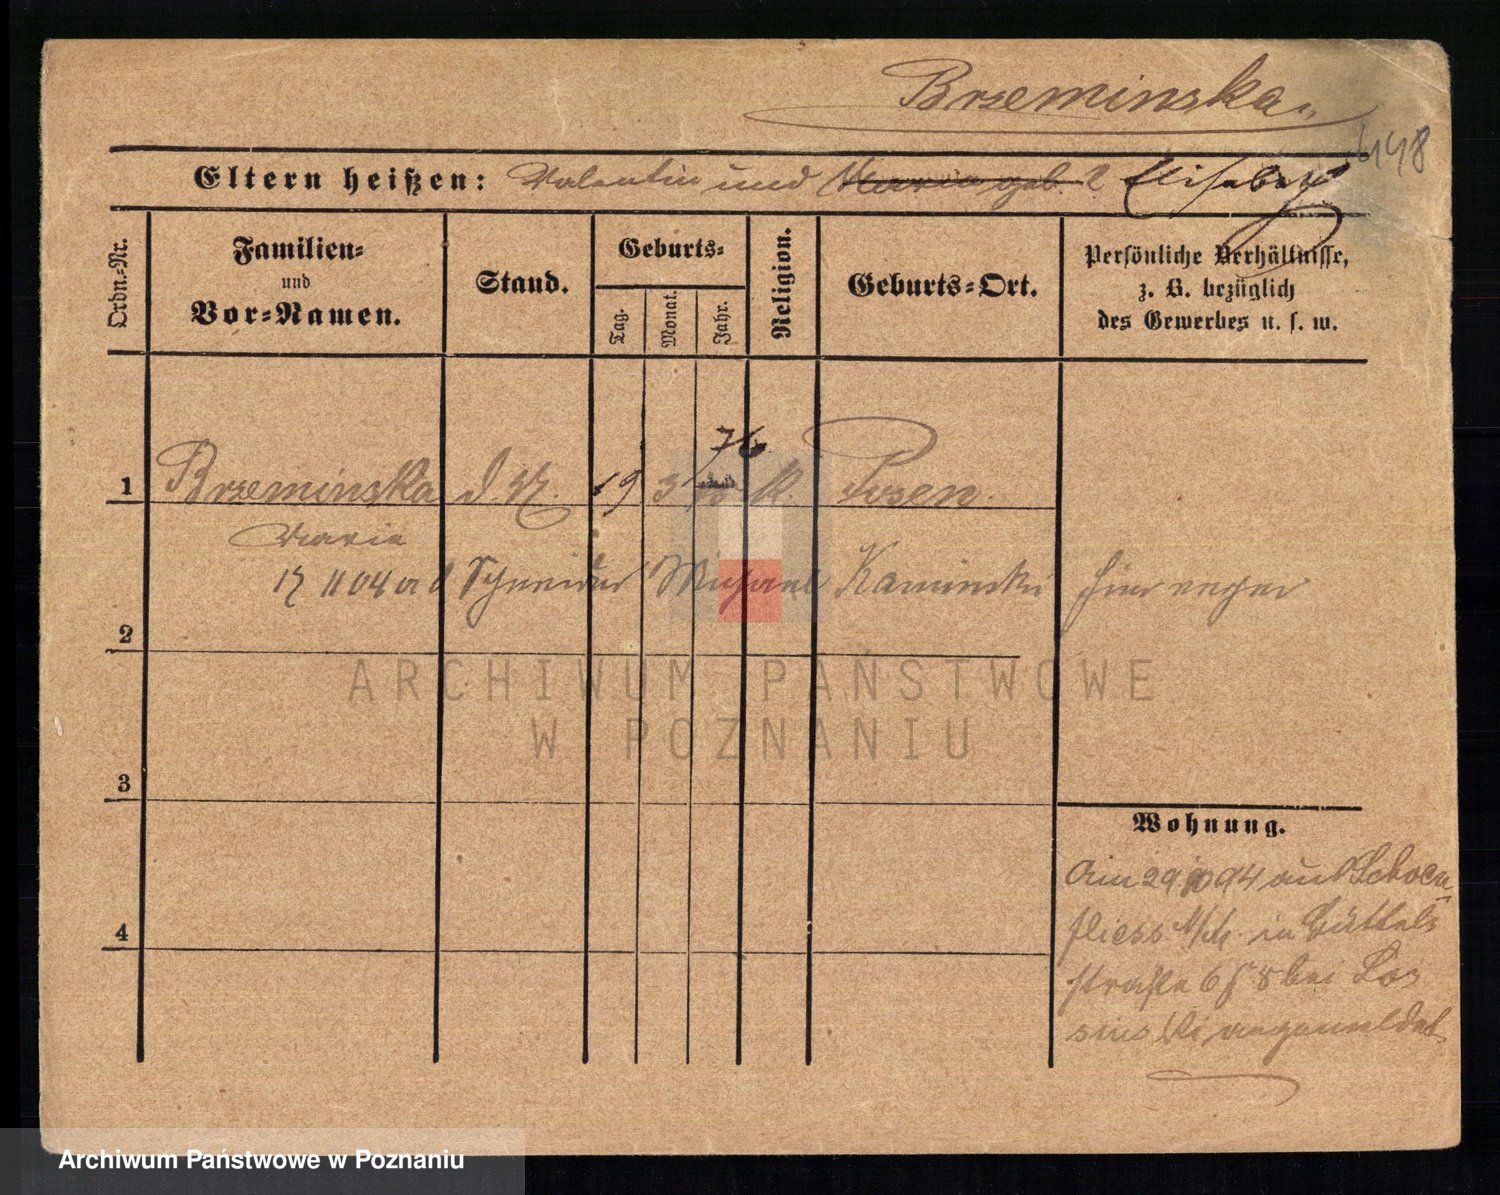 Brzeminska
6148
Eltern heißen: Valentin und Maria geb. ? Elisabeth
Ordn.-Nr.
Familien-
und
Vor-Namen.
Stand.
Geburts-
Tag.
Monat.
Jahr.
Religion.
Geburts-Ort.
Persönliche Verhältnisse,
z. B. bezüglich
des Gewerbes u. s. w.
76
1 Brzeminska d. M. 19 3 k. Posen.
Maria
04 Schneider Michael Kaminski
2
3
4
Wohnung.
Am 29 10 94 aus Schoen
fliess N/M. in Büttel
straße 6 bei Los
sinski angemeldet
ARCHIWUM PAŃSTWOWE
W POZNANIU
Archiwum Państwowe w Poznaniu